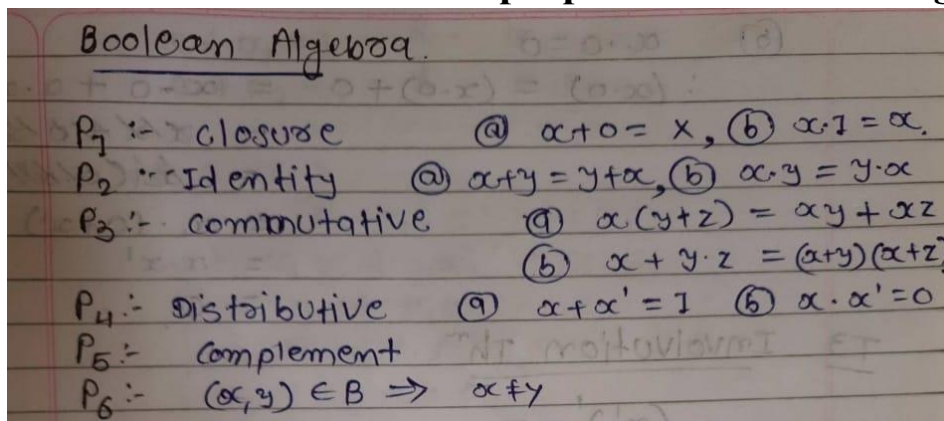 Boolean Algebra.
P1 :- closure (a) x+0 = x, (b) x·1 = x.
P2 :- Identity (a) x+y = y+x, (b) x·y = y·x
P3 :- commutative (a) x(y+z) = xy + xz
(b) x + y·z = (x+y)(x+z)
P4 :- Distributive (a) x+x' = 1 (b) x·x' = 0
P5 :- complement
P6 :- (x,y) ∈ B ⇒ x≠y